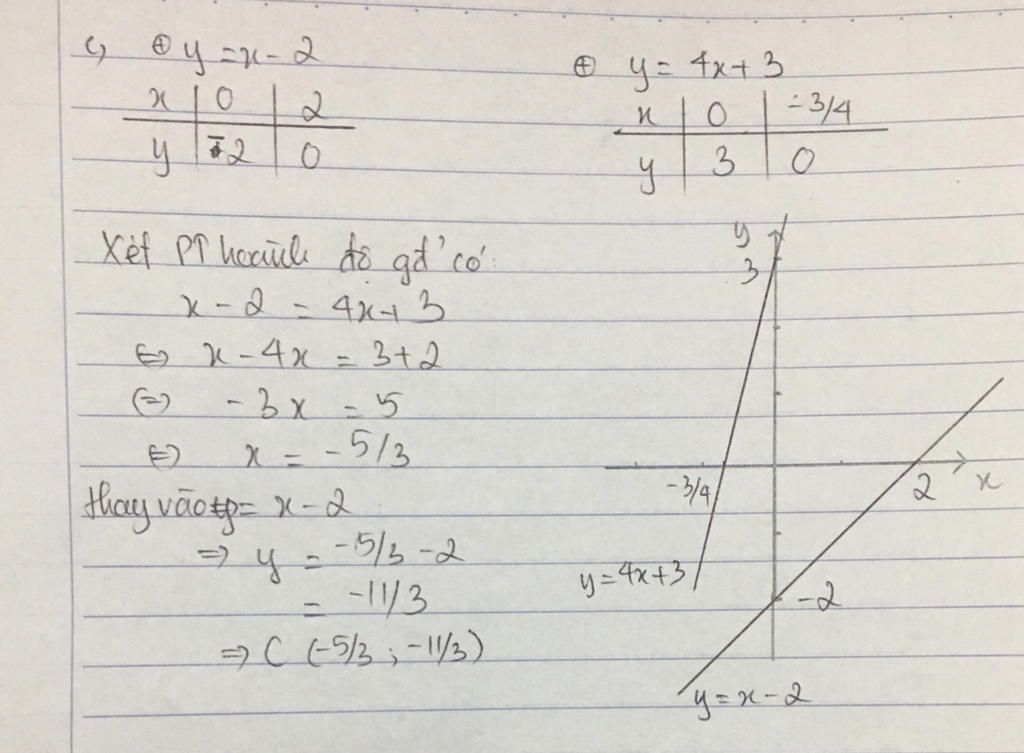 c, ⊕ y = x - 2
x | 0 | 2
y | -2 | 0
⊕ y = 4x + 3
x | 0 | -3/4
y | 3 | 0
Xét PT hoành độ gđ' có:
x - 2 = 4x + 3
⇔ x - 4x = 3 + 2
⇔ -3x = 5
⇔ x = -5/3
thay vào y = x - 2
⇒ y = -5/3 - 2
= -11/3
⇒ C (-5/3 ; -11/3)
y
3
-3/4
2
x
y = 4x + 3
-2
y = x - 2